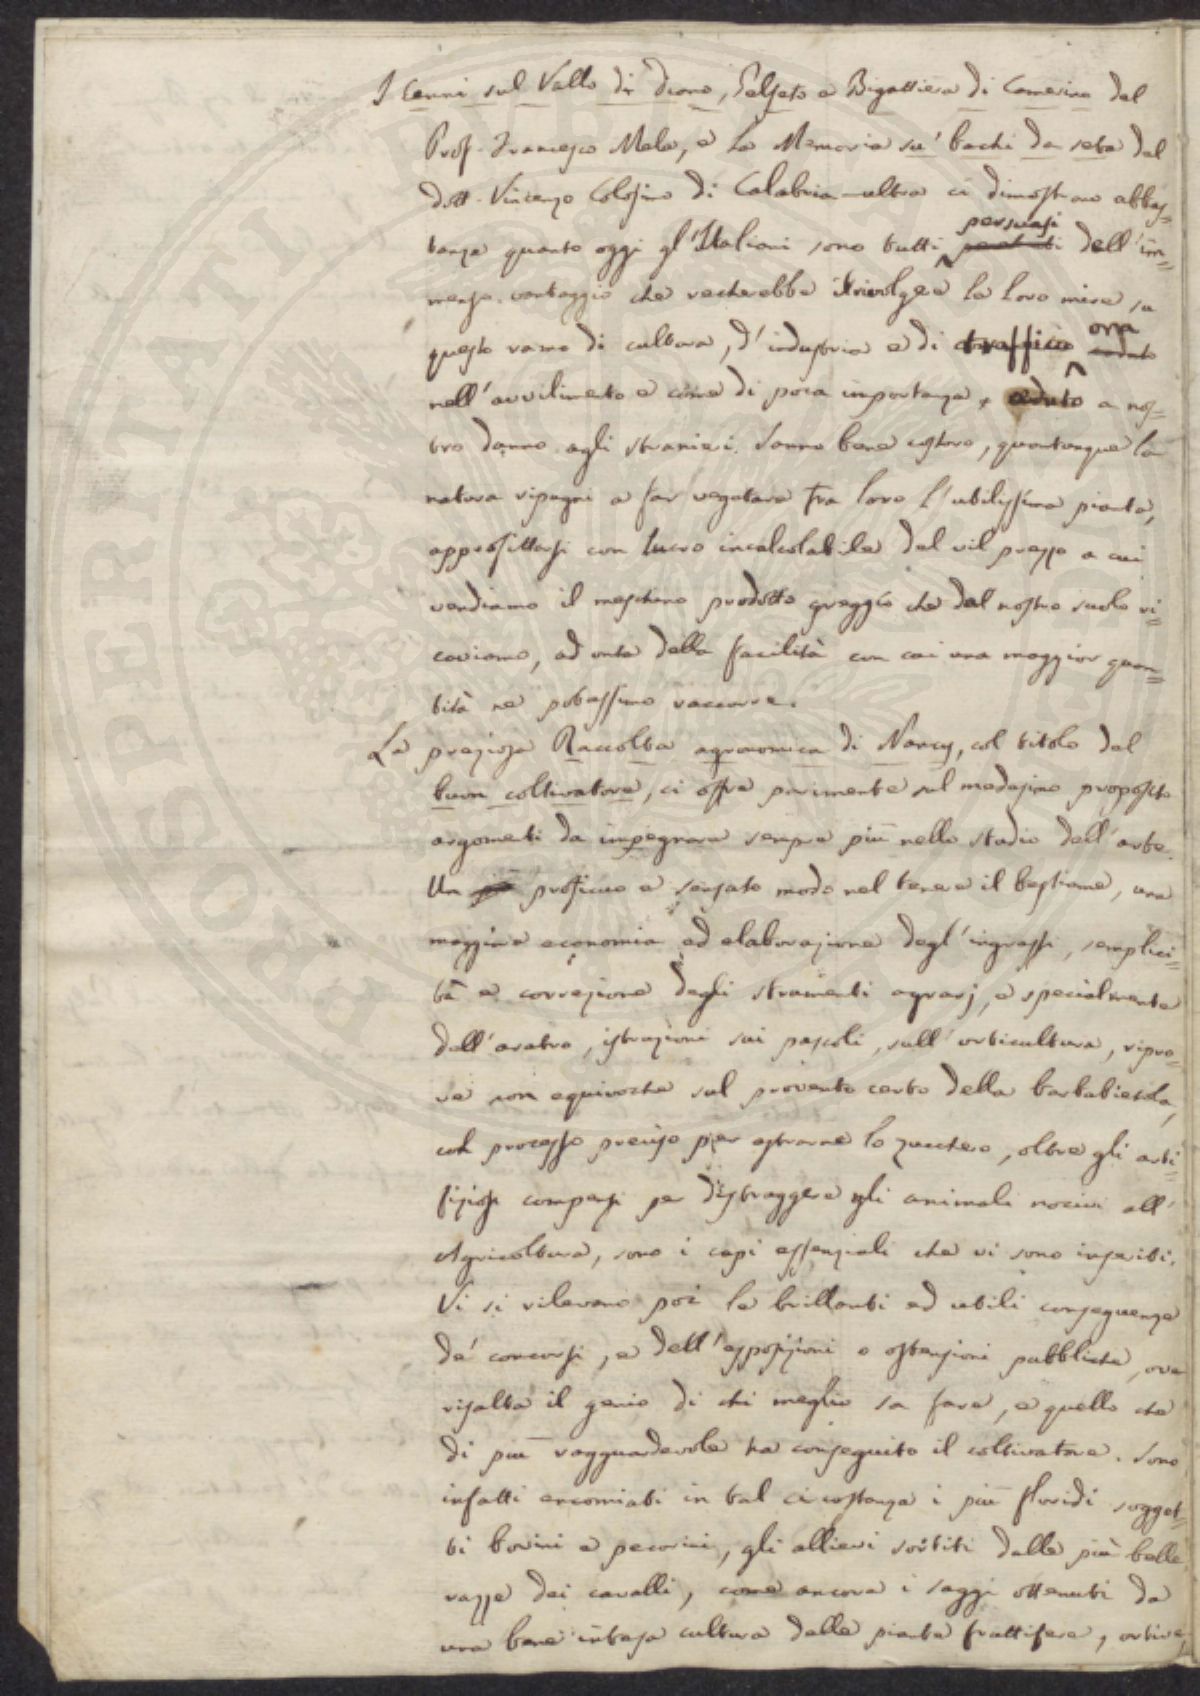 I Cenni sul Vallo di Diano, Gelseto e Bigattiera di Camerino del
Prof. Francesco Mele, e la Memoria su' bachi da seta del
dott. Vincenzo Colosimo di Calabria-ultra ci dimostrano abbas=
tanza quanto oggi gl'Italiani sono tutti persuasi dell'im=
menso vantaggio che recherebbe il rivolgere le loro mire su
questo ramo di cultura, d'industria e di traffico ora
nell'avvilimento e come di poca importanza, a nos=
tro danno agli stranieri. Sanno bene costoro, quantunque la
natura ripugni a far vegetare fra loro l'utilissima pianta,
approfittarsi con lucro incalcolabile del vil prezzo a cui
vendiamo il meschino prodotto greggio che dal nostro suolo ri=
caviamo, ad onta della facilità con cui una maggior quan=
tità ne potessimo raccorre.
La preziosa Raccolta agronomica di Nancy, col titolo del
buon coltivatore, ci offre parimente sul medesimo proposito
argomenti da impegnare sempre più nello studio dell'arte.
Un proficuo e sensato modo nel tenere il bestiame, una
maggiore economia ed elaborazione degl'ingrassi, semplici=
tà e correzione degli stramenti agrarj, e specialmente
dell'aratro, istruzioni sui pascoli, sull'orticultura, ripro=
ve non equivoche sul provento certo della barbabietola,
col processo preciso per estrarne lo zucchero, oltre gli arti=
fiziosi compensi per distruggere gli animali nocivi all'
Agricoltura, sono i capi essenziali che vi sono inseriti.
Vi si rilevano poi le brillanti ed utili conseguenze
de' concorsi, e dell'esposizioni o ostensioni pubbliche, ove
risalta il genio di chi meglio sa fare, e quello che
di più ragguardevole ha conseguito il coltivatore. Sono
infatti encomiati in tal circostanza i più floridi sogget=
ti bovini e pecorini, gli allievi sortiti dalle più belle
razze dei cavalli, come ancora i saggi ottenuti da
una bene intesa cultura delle piante fruttifere, ortive,